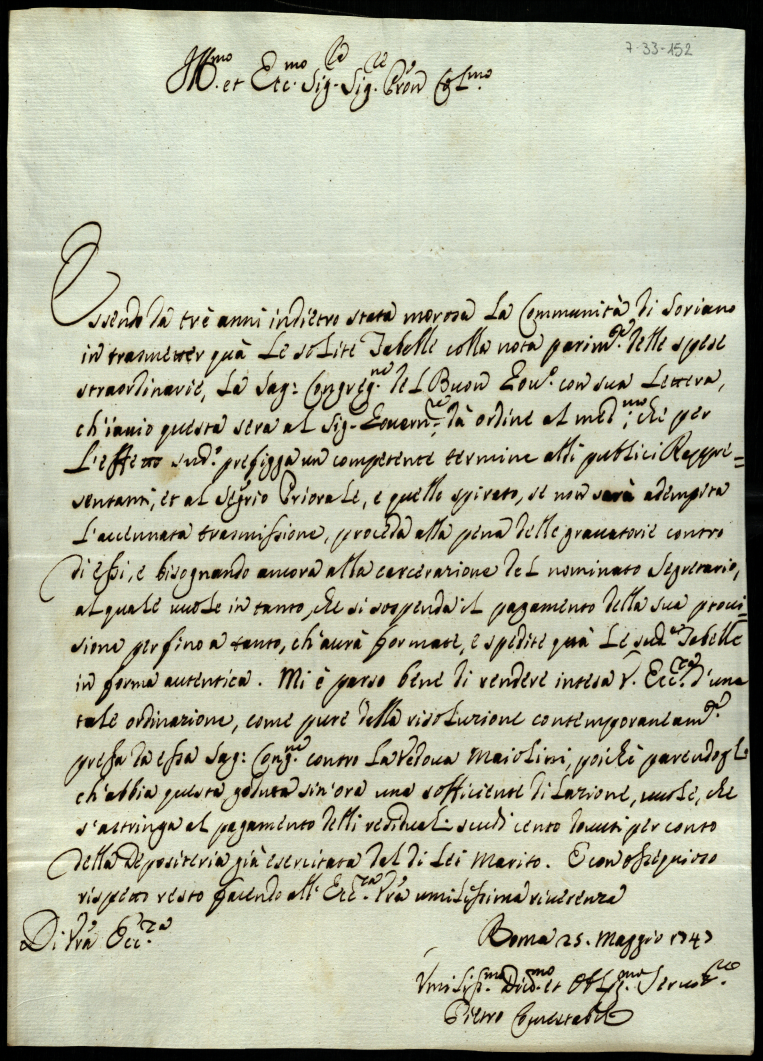 7-33-152
Ill.mo et Ecc.mo Sig.re Sig.re Pron Col.mo
Essendo da trè anni indietro stata morosa la Communità di Soriano
in trasmetter quà le solite Tabelle colla nota parim.te delle spese
straordinarie, la Sag: Congreg.ne del Buon Gov.o con sua Lettera,
ch'invio questa sera al Sig. Govern.re, dà ordine al med.mo, che per
l'effetto sud.o prefigga un competente termine alli publici Rappre=
sentanti, et al Seg̃rio Priorale, e quello spirato, se non sarà adempita
l'accennata trasmissione, proceda alla pena delle gravatorie contro
di essi, e bisognando ancora alla carcerazione del nominato Segretario,
al quale vuole in tanto, che si sospenda il pagamento della sua provi=
sione perfino a tanto, ch'avrà formate, e spedite quà le sud.e Tabelle
in forma autentica. Mi è parso bene di rendere intesa V. Ecc.za d'una
tale ordinazione, come pure della risoluzione contemporaneam.te
presa da essa Sag: Cong.ne contro la Vedova Maiolini, poichè parendogli
ch'abbia questa goduta sin'ora una sofficiente dilazione, vuole, che
s'astringa al pagamento delli residuali scudi cento dovuti per conto
della Depositeria già esercitata dal di Lei Marito. E con ossequioso
rispetto resto facendo all'Ecc.za Vrã umilissima riverenza
Di Vrã Ecc.za
Roma 25. Maggio 1747
Umiliss.mo Div.mo et Obblig.mo Servit.re
Pietro